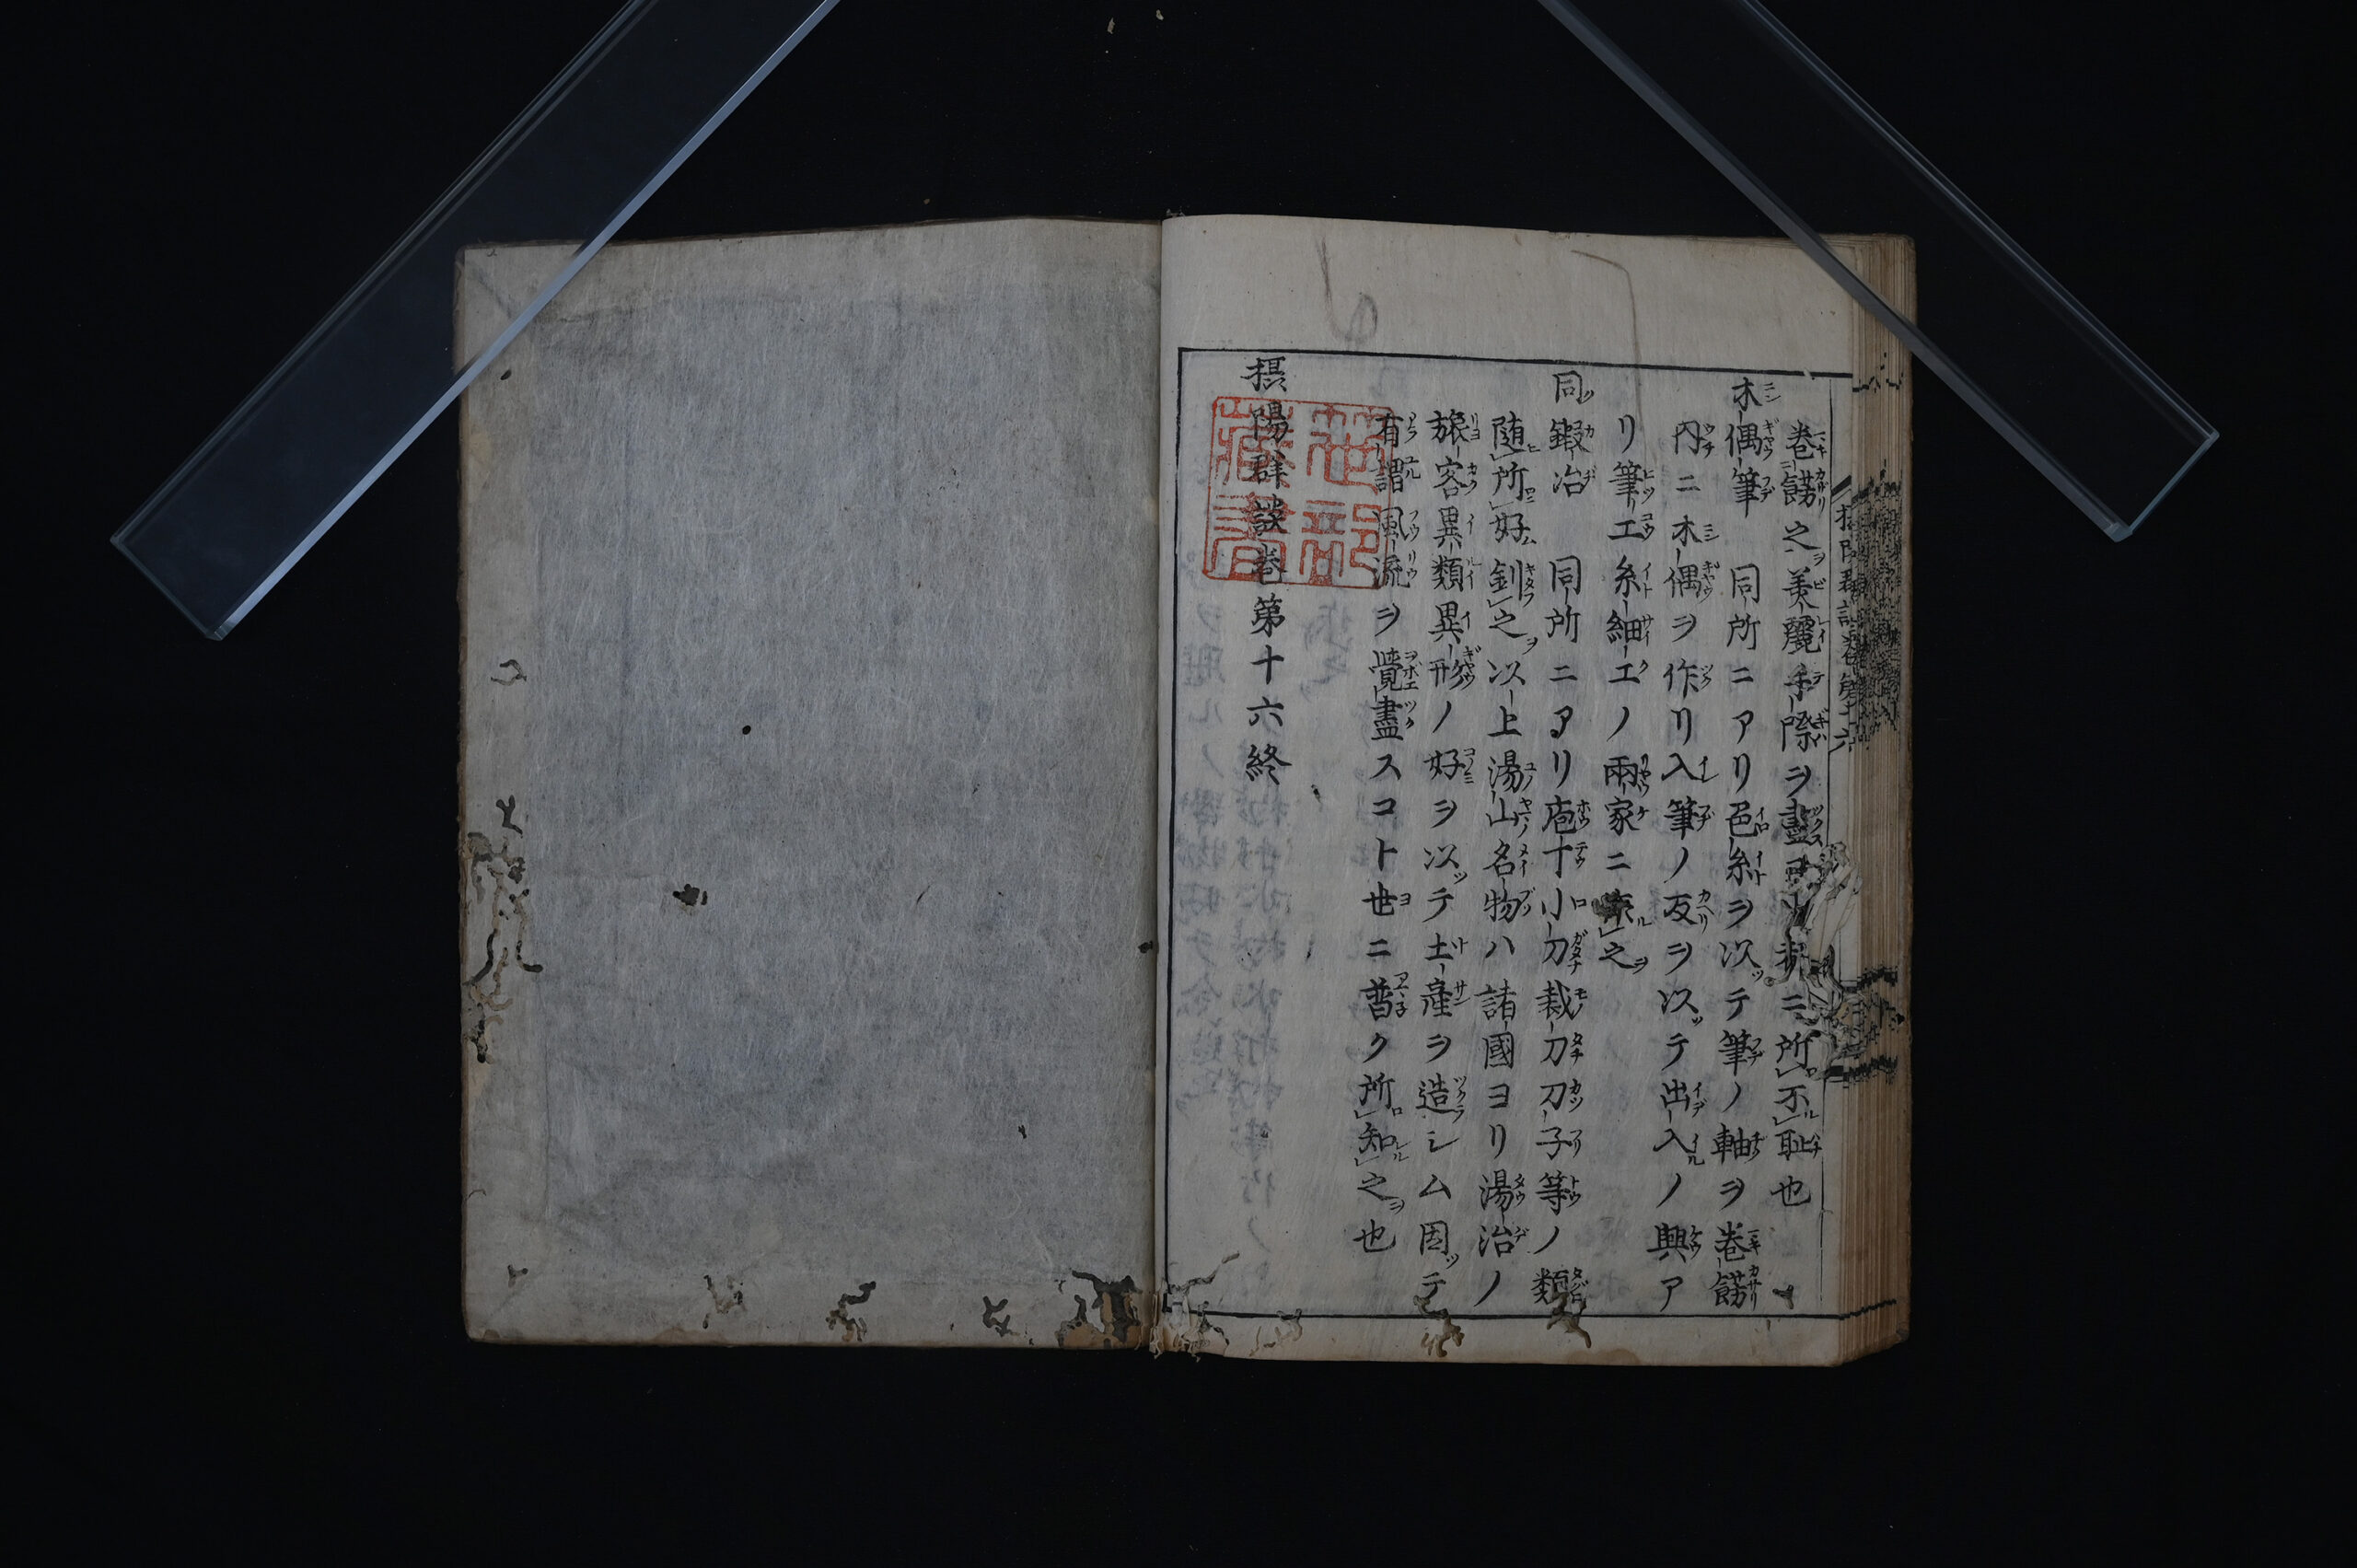 巻餝之美麗手際ヲ盡ニ所不耻也
木偶筆 同所ニアリ色糸ヲ以テ筆ノ軸ヲ巻餝
内ニ木偶ヲ作リ入筆ノ反ヲ以テ出入ノ興ア
リ筆工糸細工ノ兩家ニ之
同鍛冶 同所ニアリ庖丁小刀裁刀刀子等ノ類
随所好釗之以上湯山名物ハ諸國ヨリ湯治ノ
旅客異類異形ノ好ヲ以テ土産ヲ造シム因テ
有謂風流ヲ覺盡スコト世ニ普ク所知之也
摂陽群談巻第十六終